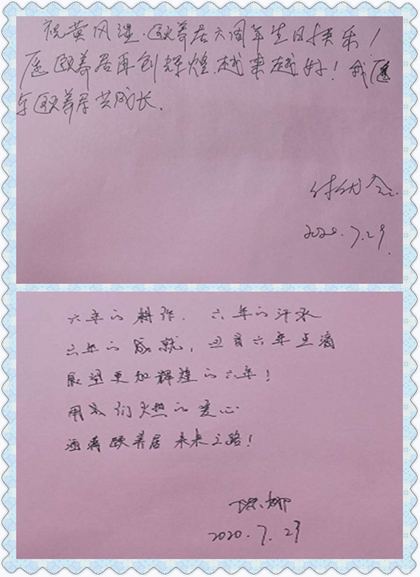 祝黄冈遗爱颐养居六周年生日快乐！
愿颐养居再创辉煌越来越好！我愿
与颐养居共成长.
2020.7.29
六年的耕作. 六年的汗水
六年的成就, 点
展望更加辉煌的六年！
用我们火热的爱心
颐养居未来之路！
娜
2020.7.29